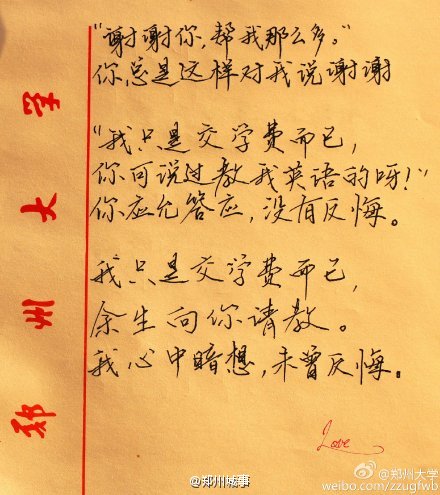 "谢谢你,帮我那么多。"
你总是这样对我说谢谢
"我只是交学费而已,
你可说过教我英语的呀!"
你应允答应,没有反悔。
我只是交学费而已,
余生向你请教。
我心中暗想,未曾反悔。
Love
郑州大学
@郑州城事
@郑州大学
weibo.com/zzugfwb